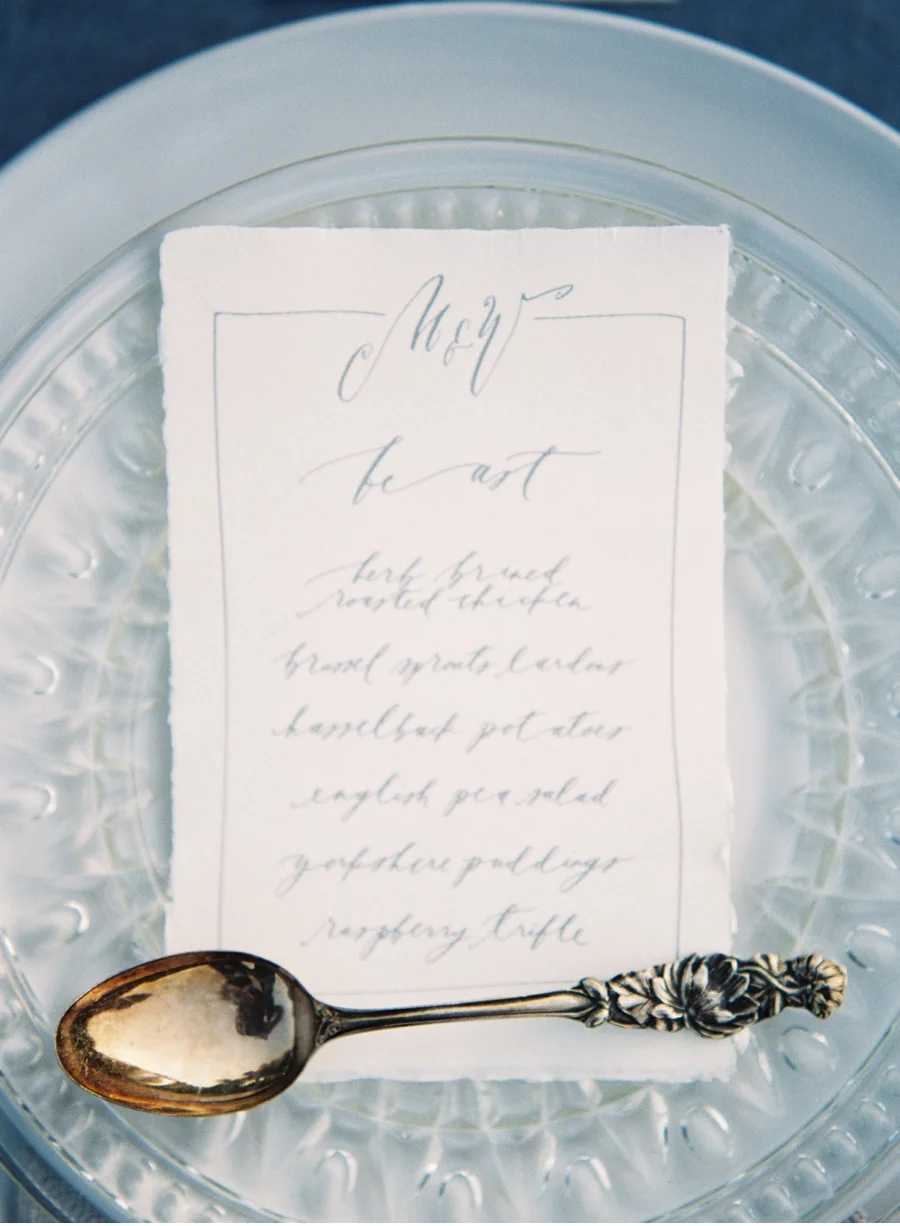 M & W
herb brined
roasted chicken
brussel sprouts lardons
hasselback potatoes
english pea salad
yorkshire puddings
raspberry trifle